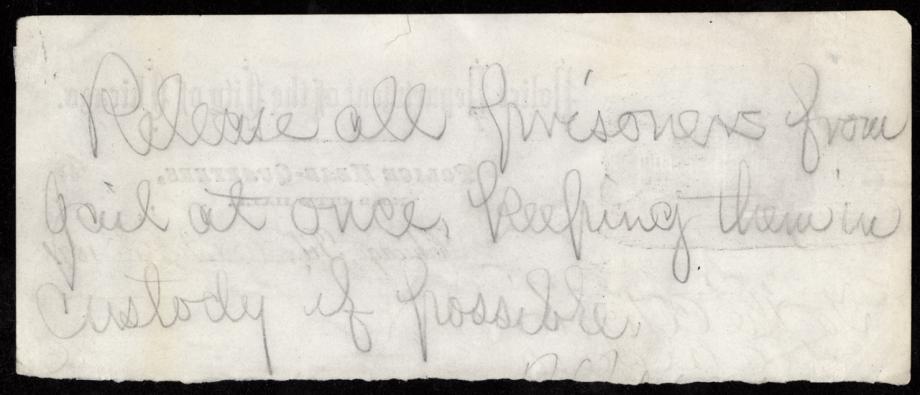 Release all prisoners from
Jail at once, keeping them in
custody if possible.